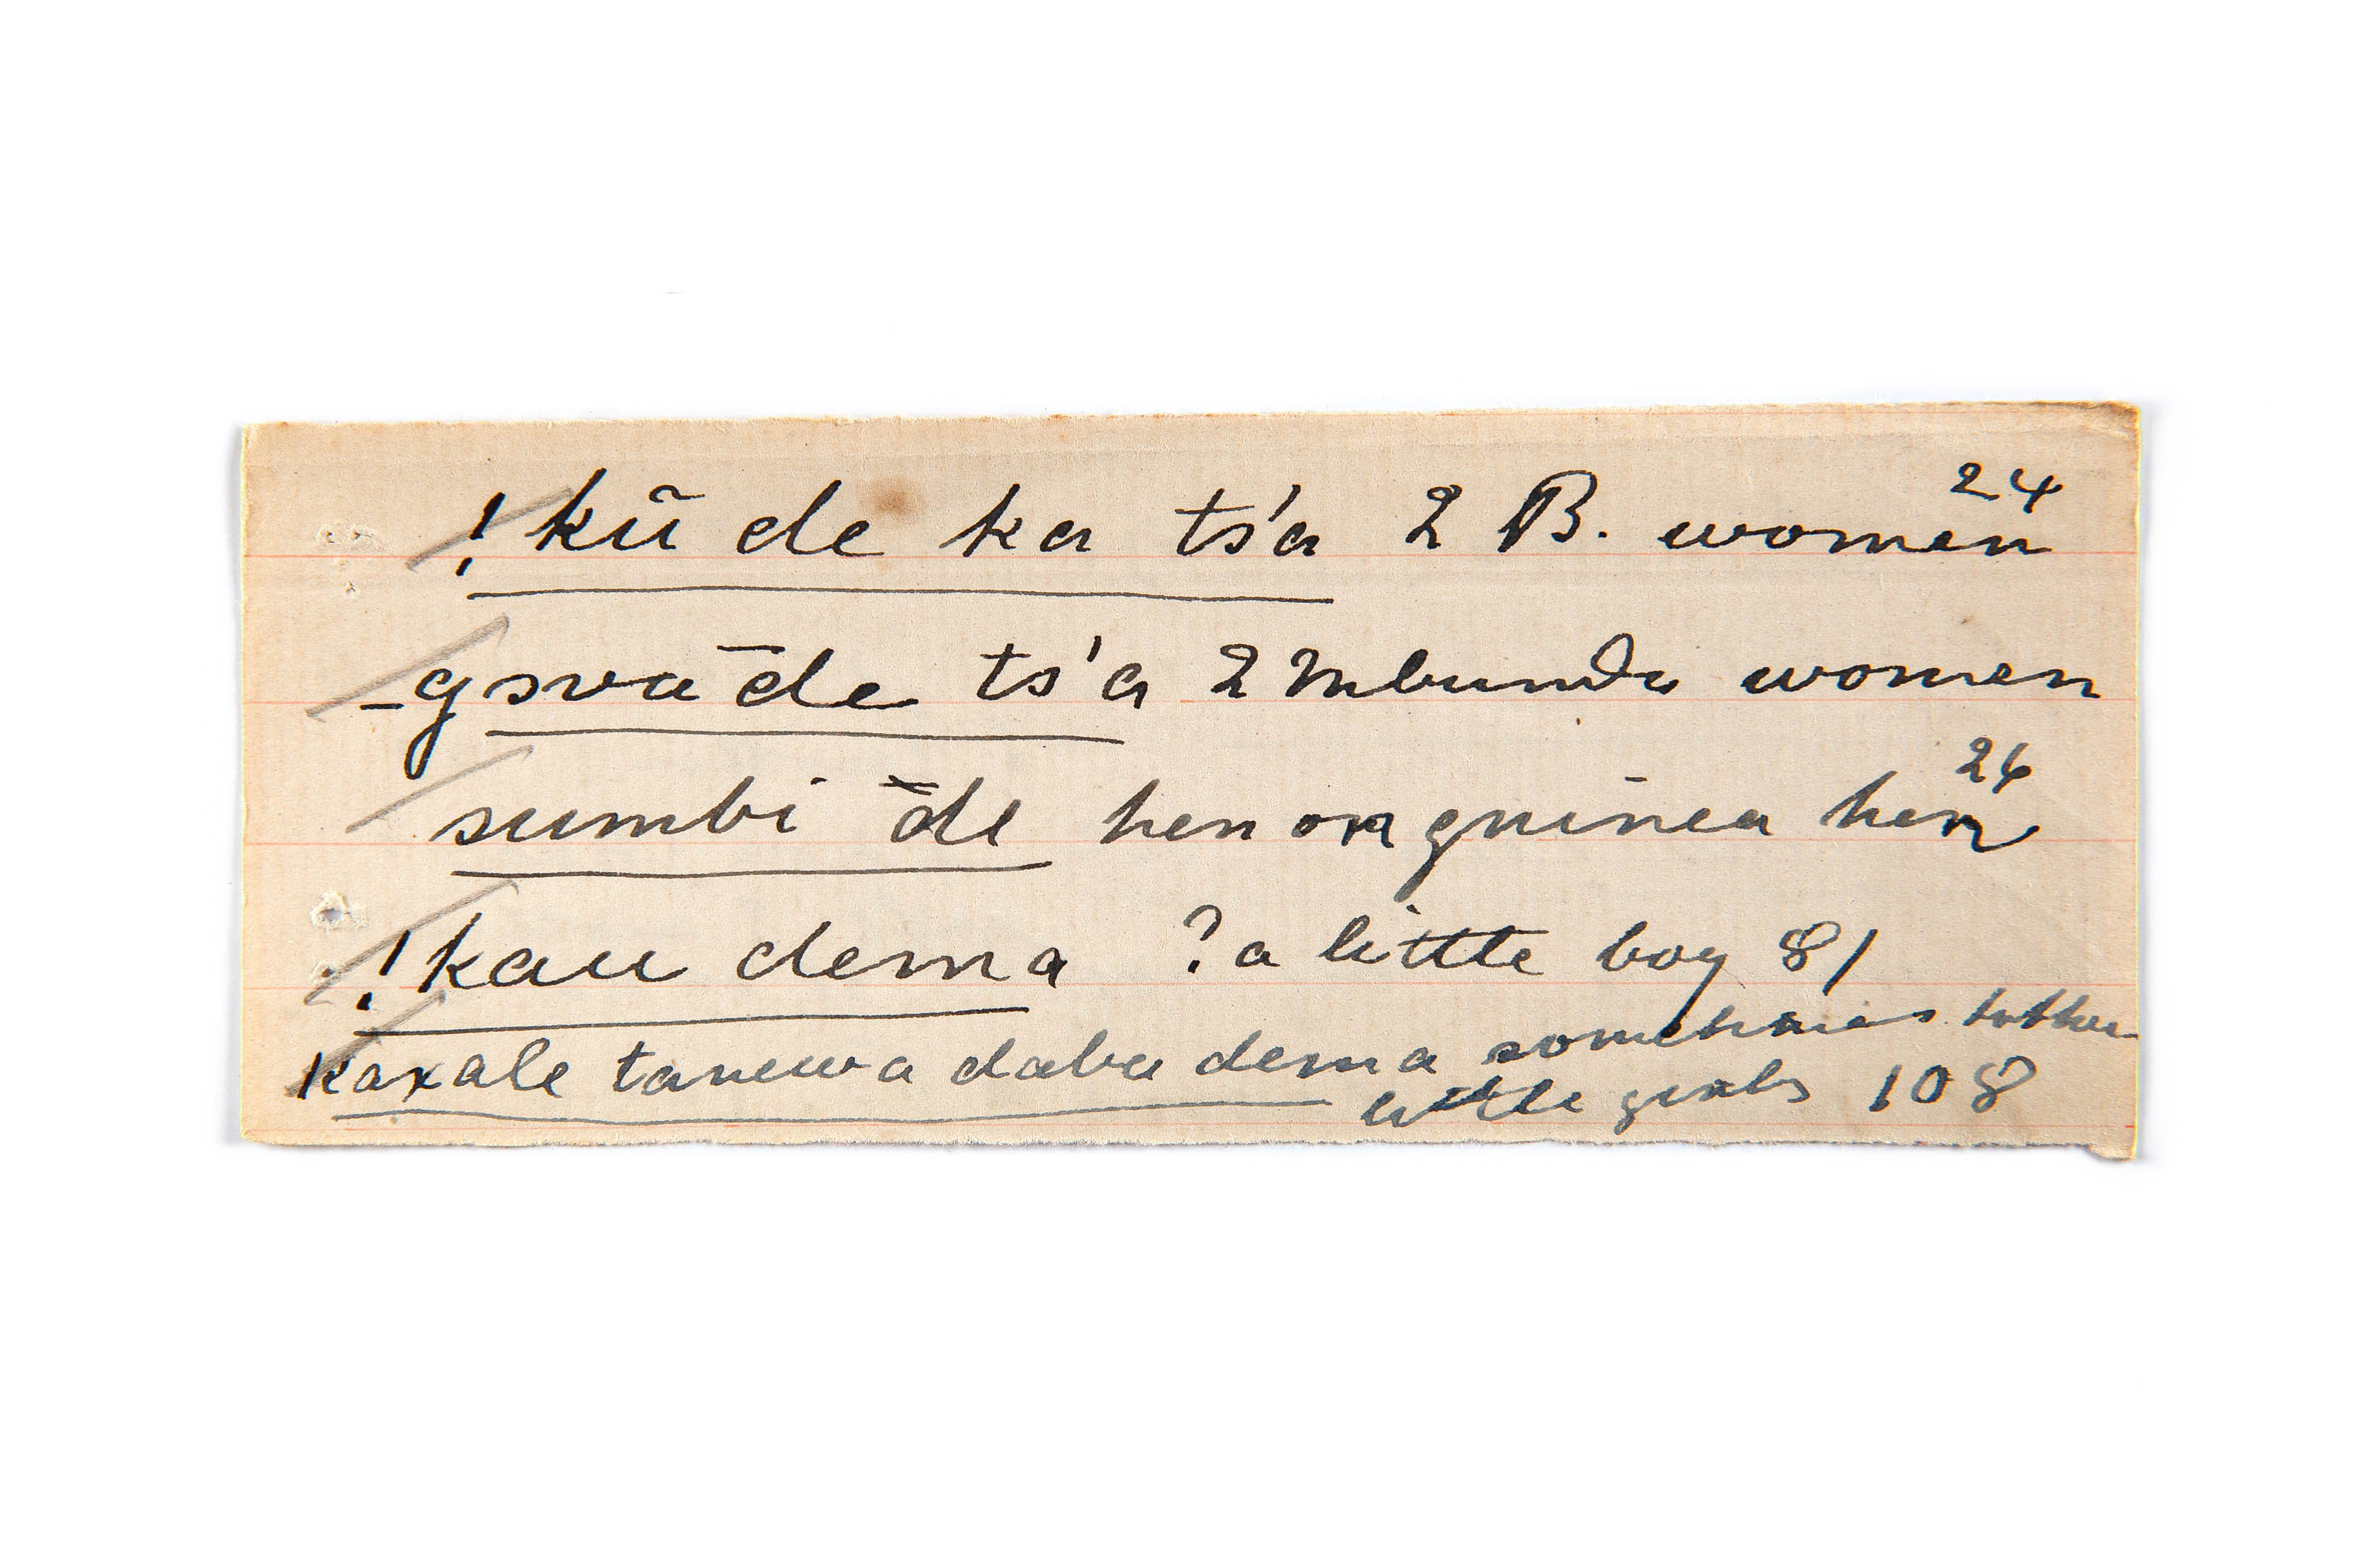 !kũ de ka ts'a 2 B. women 24
_gsva de ts'a 2 Mbundu women
sumbi de hen or guinea hen 26
!kau dema ? a little boy 81
kaxale tanewa daba dema sometimes
little girls 108